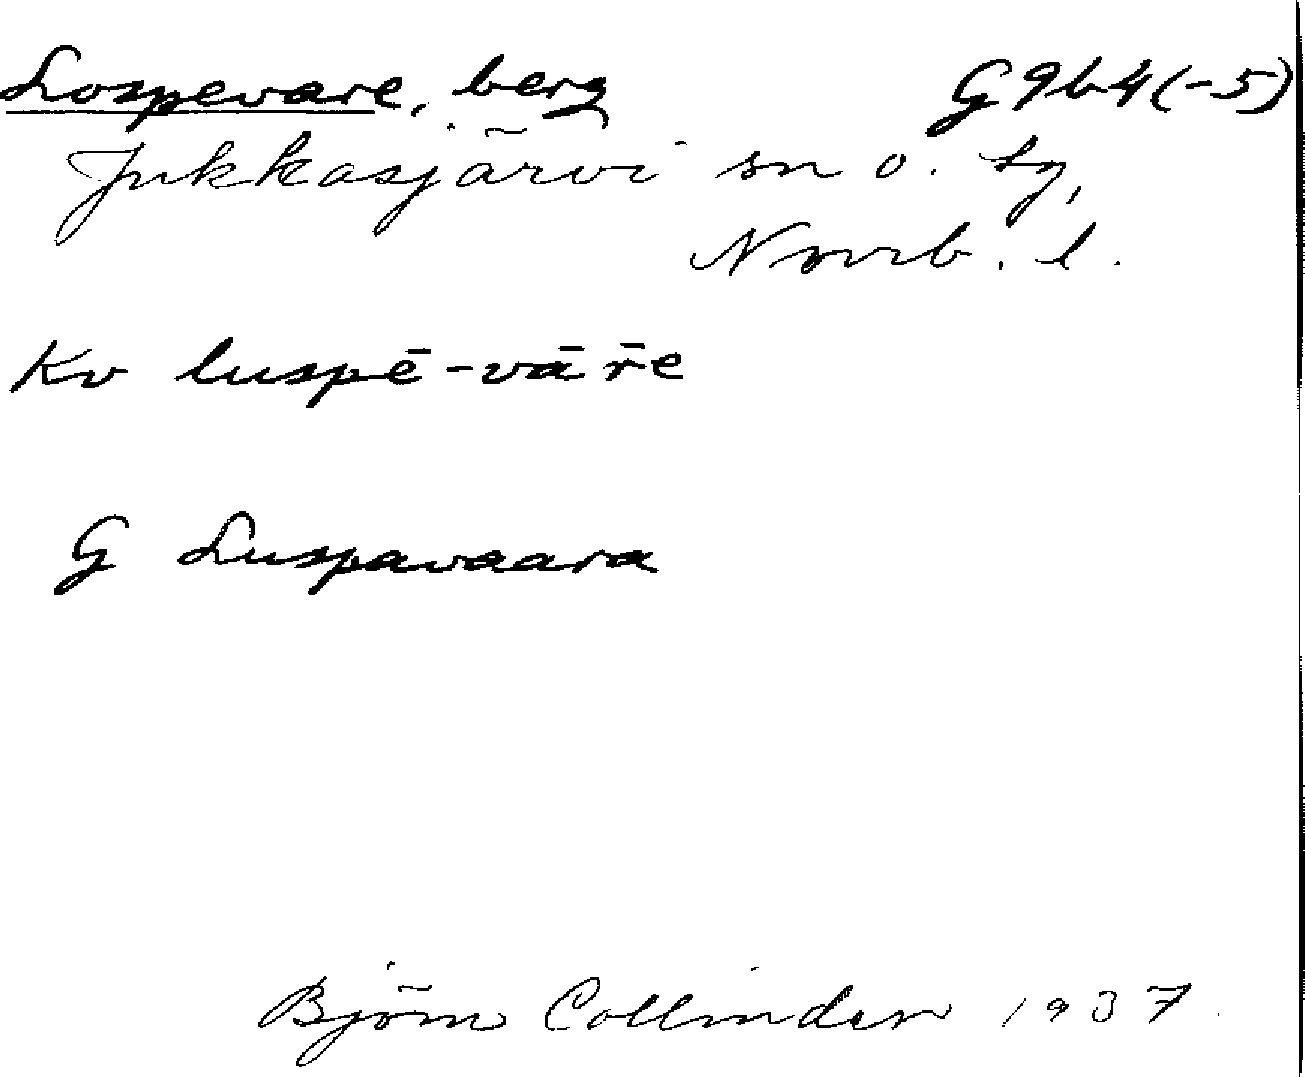 Lospevare, berg G9b4(-5)
Jukkasjärvi sn o. tg,
Norrb. l.
Kv luspē-vār̄e
G Luspavaara
Björn Collinder 1937